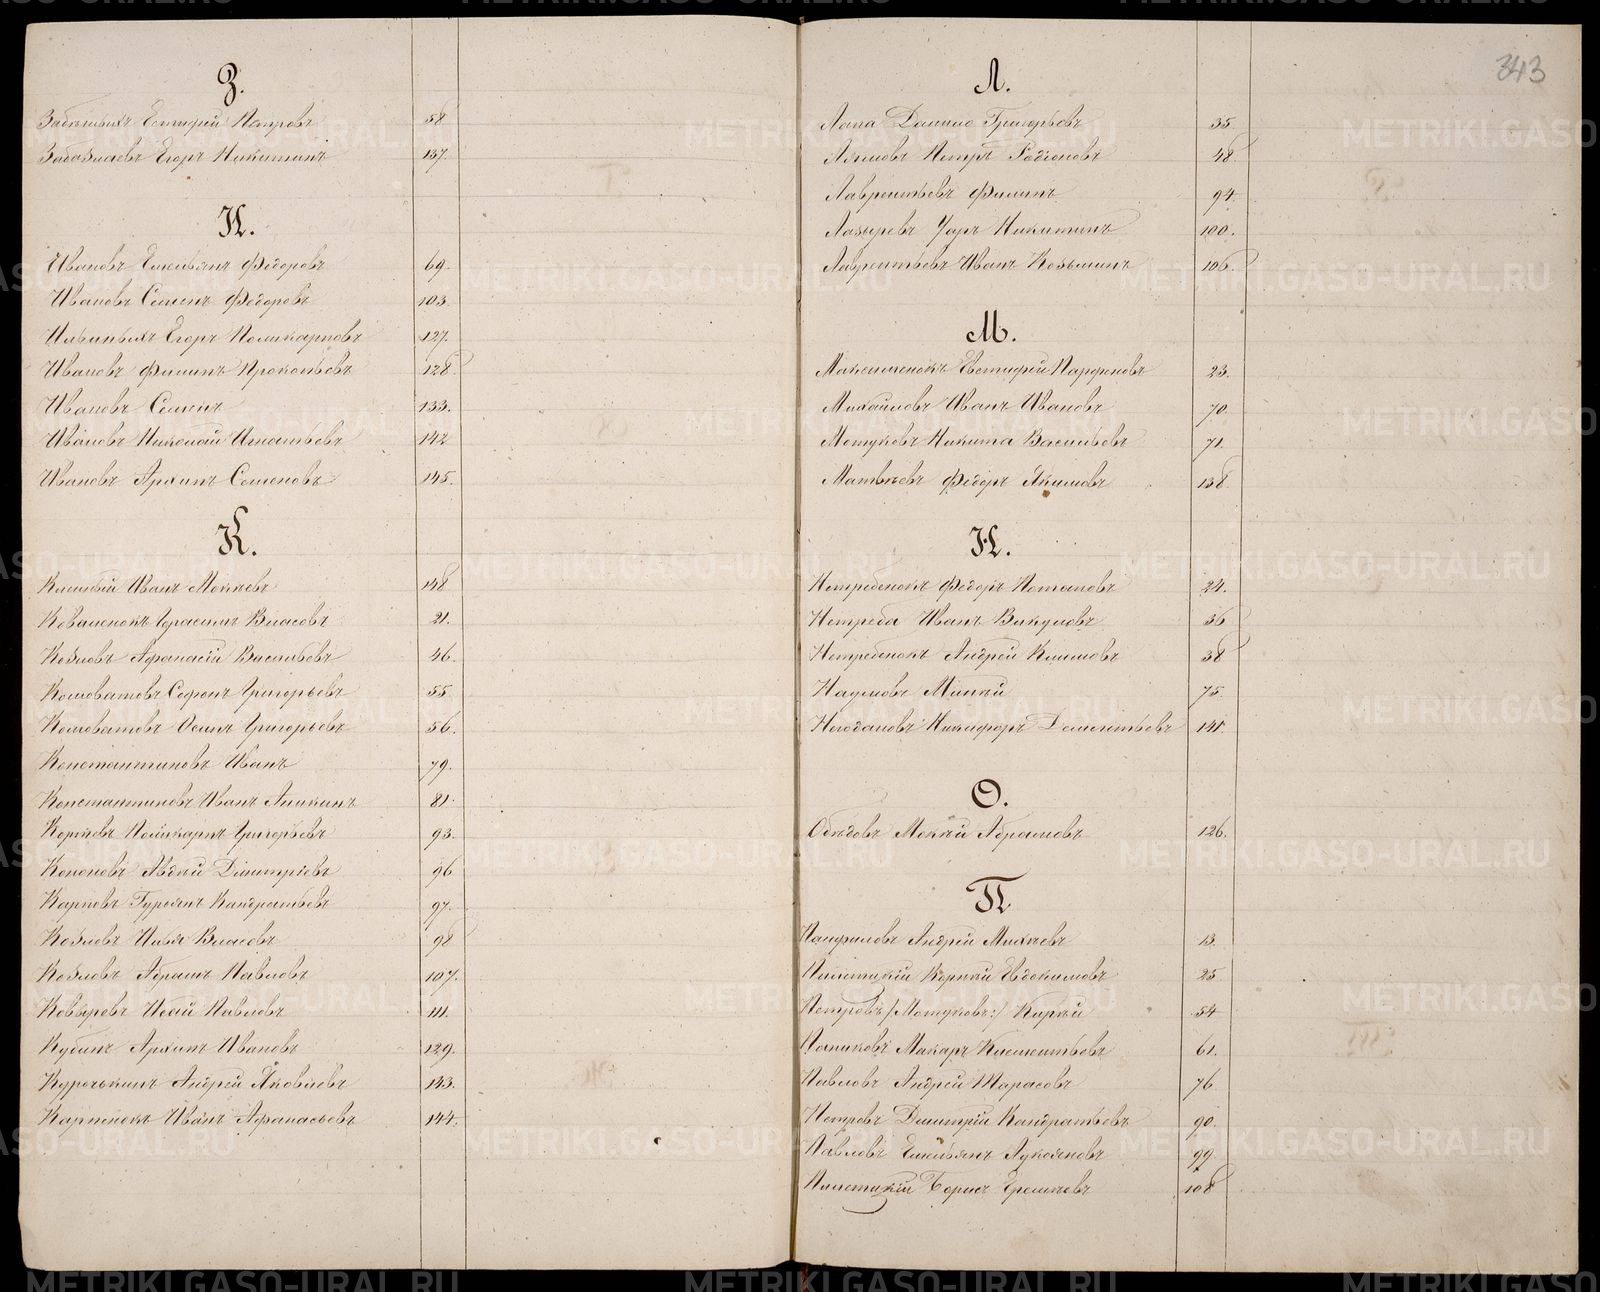 З.
Евтифій Петровъ 58
Егоръ Никитинъ 137.
И.
Ивановъ Емельянъ Ѳедоровъ 69.
Ивановъ Семенъ Ѳедоровъ 103.
Ильиныхъ Егоръ Поликарповъ 127.
Ивановъ Филипъ Прокопьевъ 128.
Ивановъ Семенъ 133.
Ивановъ Николай Игнатьевъ 142
Ивановъ Архипъ Семеновъ 145.
К.
Иванъ Мокѣевъ 148
Коваленокъ Герасимъ Власовъ 21.
Козловъ Афанасій Васильевъ 46.
Коноватовъ Софонъ Григорьевъ 55
Коноватовъ Осипъ Григорьевъ 56.
Константиновъ Иванъ 79.
Константиновъ Иванъ Аникинъ 81.
Корпевъ Поликарпъ Григорьевъ 93.
Кононовъ Авдѣй Димитріевъ 96
Карповъ Гурьянъ Кандратьевъ 97.
Козловъ Илья Власовъ 98
Козловъ Абрамъ Павловъ 107.
Ковыревъ Исай Павловъ 111.
Кубинъ Архипъ Ивановъ 129.
Курочькинъ Андрей Яковлевъ 143.
Карпенокъ Иванъ Афанасьевъ 144.
343
Л.
Лапа Данило Григорьевъ 35.
Петръ Родіоновъ 48.
Лаврентьевъ Филипъ 94.
Лазыревъ Уаръ Никитинъ 100.
Лаврентьевъ Иванъ Козьминъ 106.
М.
Максименокъ Евтифій Парфеновъ 23.
Михайловъ Иванъ Ивановъ 70.
Мотуковъ Никита Васильевъ 71.
Матвѣевъ Ѳедоръ Якимовъ 138
Н.
Нетребенокъ Ѳедоръ Потаповъ 24.
Нетреба Иванъ Викуловъ 36
Нетребенокъ Андрей Климовъ 38
Наумовъ Минѣй 75.
Никифоръ Дементьевъ 141.
О.
Обѣдовъ Мокѣй Абрамовъ 126.
П
Панфиловъ Андрей Михѣевъ 13.
Пилецкій Корнѣй Евдокимовъ 25
Петровъ /Мотуковъ:/ Кирѣй 54
Макаръ Клементьевъ 61.
Павловъ Андрей Тарасовъ 76.
Петровъ Димитрій Кандратьевъ 90.
Павловъ Емельянъ Лукояновъ 99.
Пилецкій Борисъ Еремѣевъ 108
METRIKI.GASO-URAL.RU